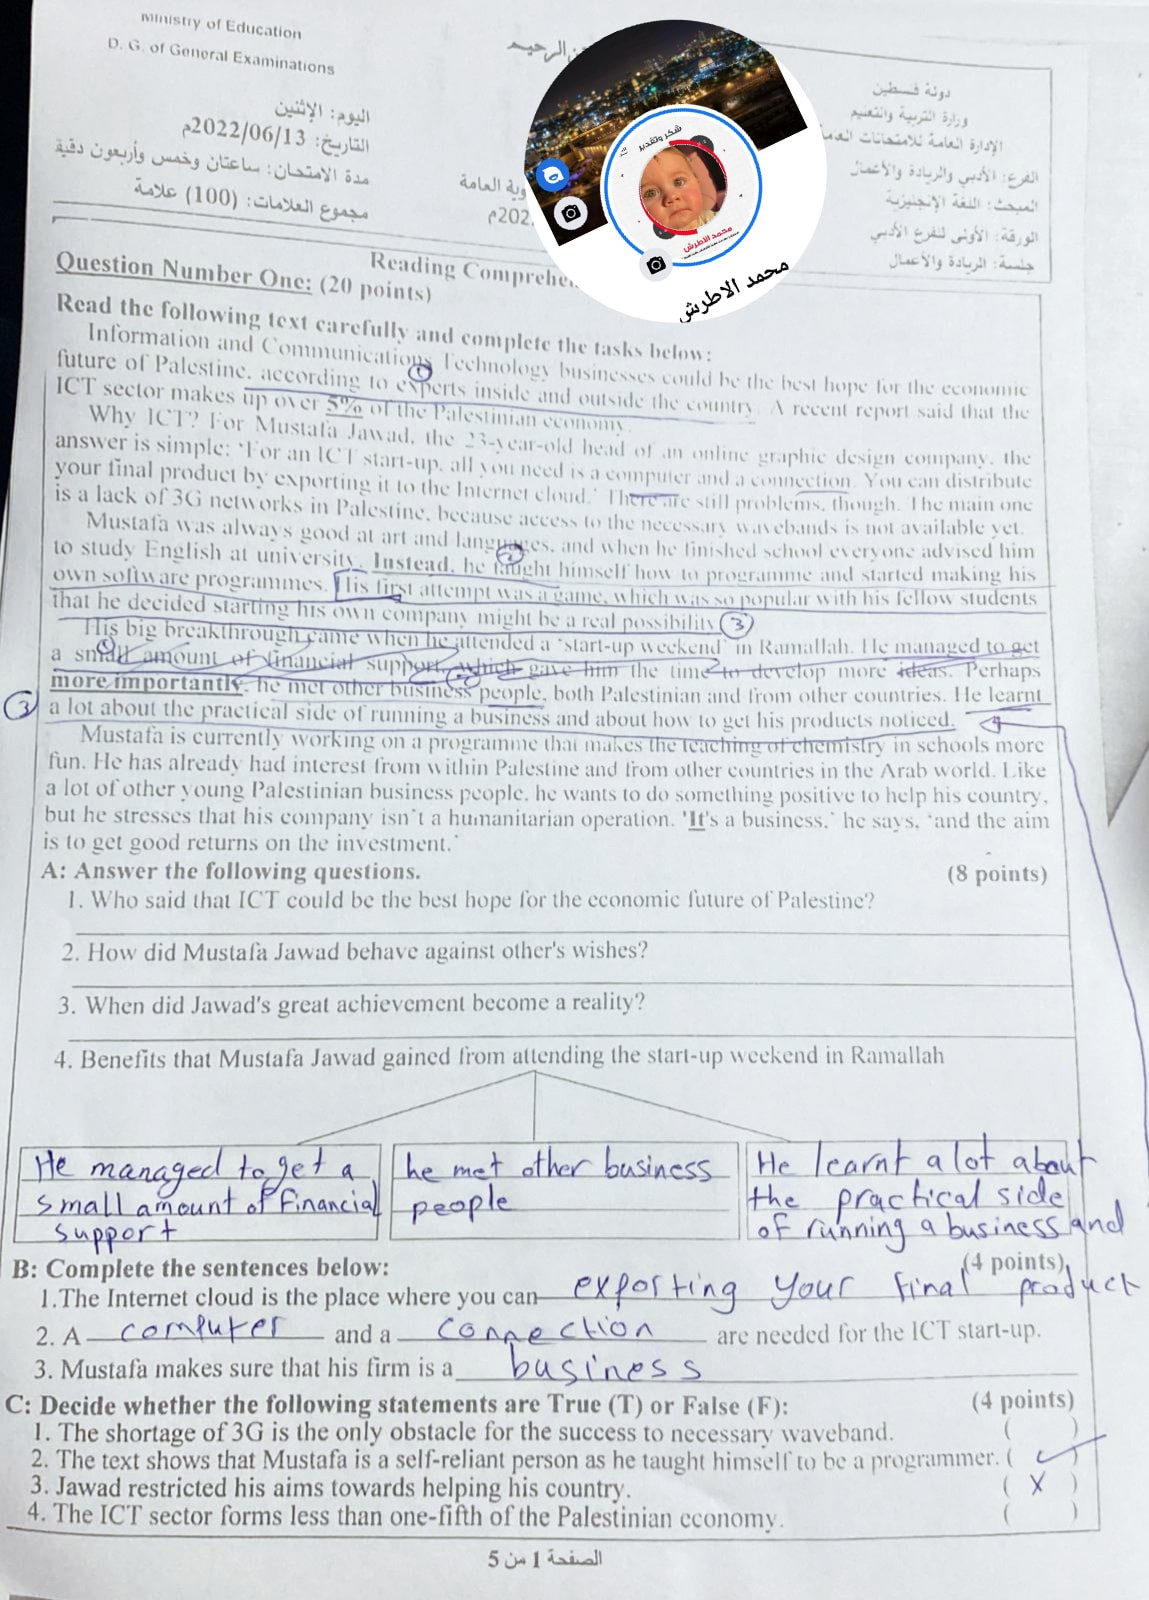 Ministry of Education
D. G. of General Examinations
اليوم: الإثنين
التاريخ: 2022/06/13م
مدة الامتحان: ساعتان وخمس وأربعون دقيقة
مجموع العلامات: (100) علامة
الرحيم
العامة
202م
دولة فلسطين
وزارة التربية والتعليم
الإدارة العامة للامتحانات العامة
الفرع: الأدبي والريادة والأعمال
المبحث: اللغة الإنجليزية
الورقة: الأولى للفرع الأدبي
جلسة: الريادة والأعمال
شكر وتقدير
محمد الأطرش
محمد الاطرش
Reading Comprehe
Question Number One: (20 points)
Read the following text carefully and complete the tasks below:
Information and Communications Technology businesses could be the best hope for the economic
future of Palestine, according to experts inside and outside the country. A recent report said that the
ICT sector makes up over 5% of the Palestinian economy.
Why ICT? For Mustafa Jawad, the 23-year-old head of an online graphic design company, the
answer is simple: 'For an ICT start-up, all you need is a computer and a connection. You can distribute
your final product by exporting it to the Internet cloud.' There are still problems, though. The main one
is a lack of 3G networks in Palestine, because access to the necessary wavebands is not available yet.
Mustafa was always good at art and languages, and when he finished school everyone advised him
to study English at university. Instead, he taught himself how to programme and started making his
own software programmes. His first attempt was a game, which was so popular with his fellow students
that he decided starting his own company might be a real possibility. 3
His big breakthrough came when he attended a 'start-up weekend' in Ramallah. He managed to get
a small amount of financial support, which gave him the time to develop more ideas. Perhaps
more importantly, he met other business people, both Palestinian and from other countries. He learnt
3 a lot about the practical side of running a business and about how to get his products noticed.
Mustafa is currently working on a programme that makes the teaching of chemistry in schools more
fun. He has already had interest from within Palestine and from other countries in the Arab world. Like
a lot of other young Palestinian business people, he wants to do something positive to help his country,
but he stresses that his company isn't a humanitarian operation. 'It's a business,' he says, 'and the aim
is to get good returns on the investment.'
A: Answer the following questions. (8 points)
1. Who said that ICT could be the best hope for the economic future of Palestine?
2. How did Mustafa Jawad behave against other's wishes?
3. When did Jawad's great achievement become a reality?
4. Benefits that Mustafa Jawad gained from attending the start-up weekend in Ramallah
He managed to get a
small amount of financial
support
he met other business
people
He learnt a lot about
the practical side
of running a business and
B: Complete the sentences below: (4 points)
1.The Internet cloud is the place where you can exporting your final product
2. A computer and a connection are needed for the ICT start-up.
3. Mustafa makes sure that his firm is a business
C: Decide whether the following statements are True (T) or False (F): (4 points)
1. The shortage of 3G is the only obstacle for the success to necessary waveband. ( )
2. The text shows that Mustafa is a self-reliant person as he taught himself to be a programmer. ( ✓ )
3. Jawad restricted his aims towards helping his country. ( X )
4. The ICT sector forms less than one-fifth of the Palestinian economy. ( )
الصفحة 1 من 5